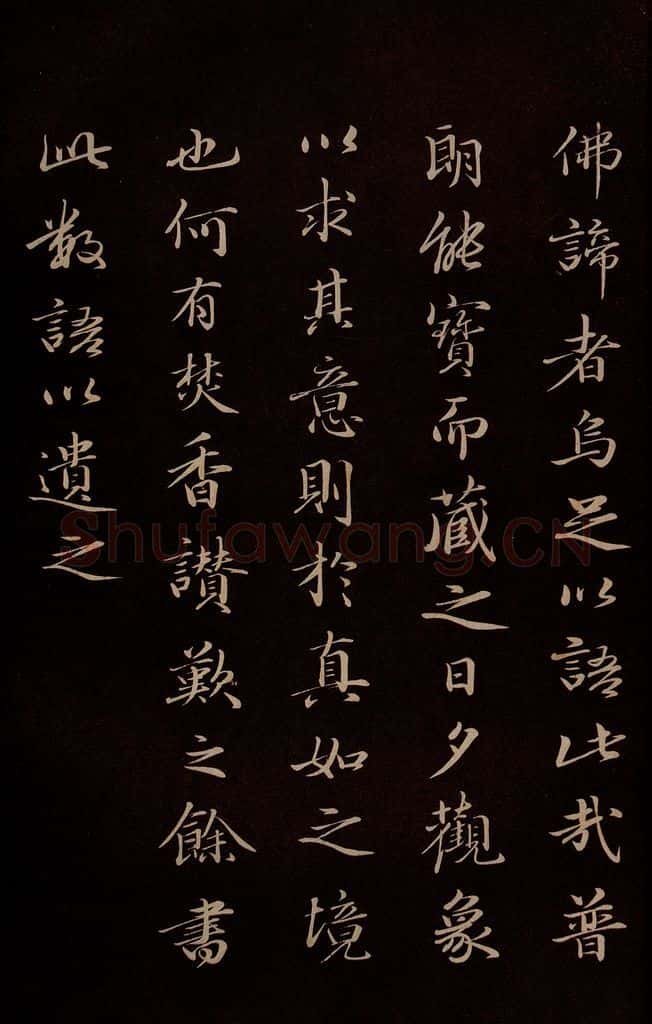 佛諦者烏足以語此哉普
朗能寶而藏之日夕觀象
以求其意則於真如之境
也何有焚香讃歎之餘書
此數語以遺之
Shufawang.CN